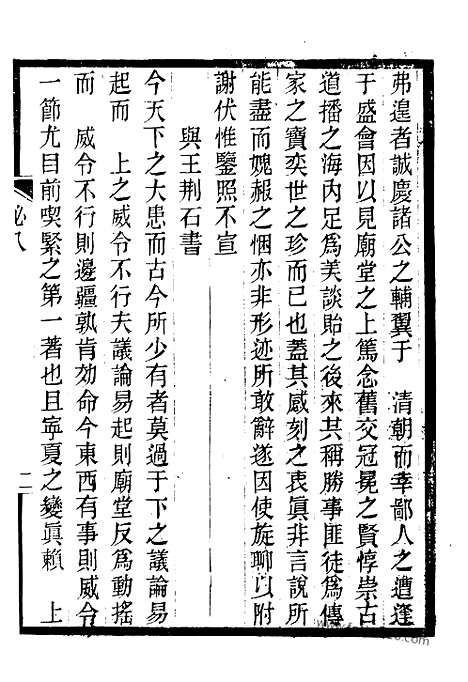 弗遑者誠慶諸公之輔翼于　清朝而幸鄙人之遭逢
于盛會因以見廟堂之上篤念舊交冠冕之賢惇崇古
道播之海內足爲美談貽之後來其稱勝事匪徒爲傳
家之寶奕世之珍而已也蓋其感刻之衷眞非言說所
能盡而媿赧之悃亦非形迹所敢辭遂因使旋聊以附
謝伏惟鑒照不宣
與王荆石書
今天下之大患而古今所少有者莫過于下之議論易
起而　上之威令不行夫議論易起則廟堂反爲動搖
而　威令不行則邊疆孰肯効命今東西有事則威令
一節尤目前喫緊之第一著也且寧夏之變眞賴　上
必八
二